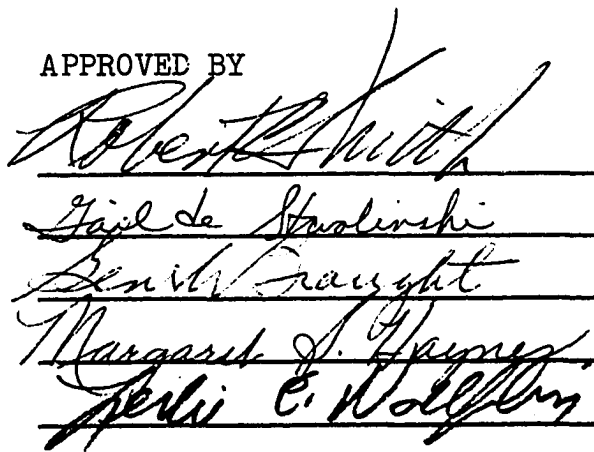 APPROVED BY
Robert Smith
Gail de Stwolinski
Gene W. Draught
Margaret S. Haynes
Leslie E.